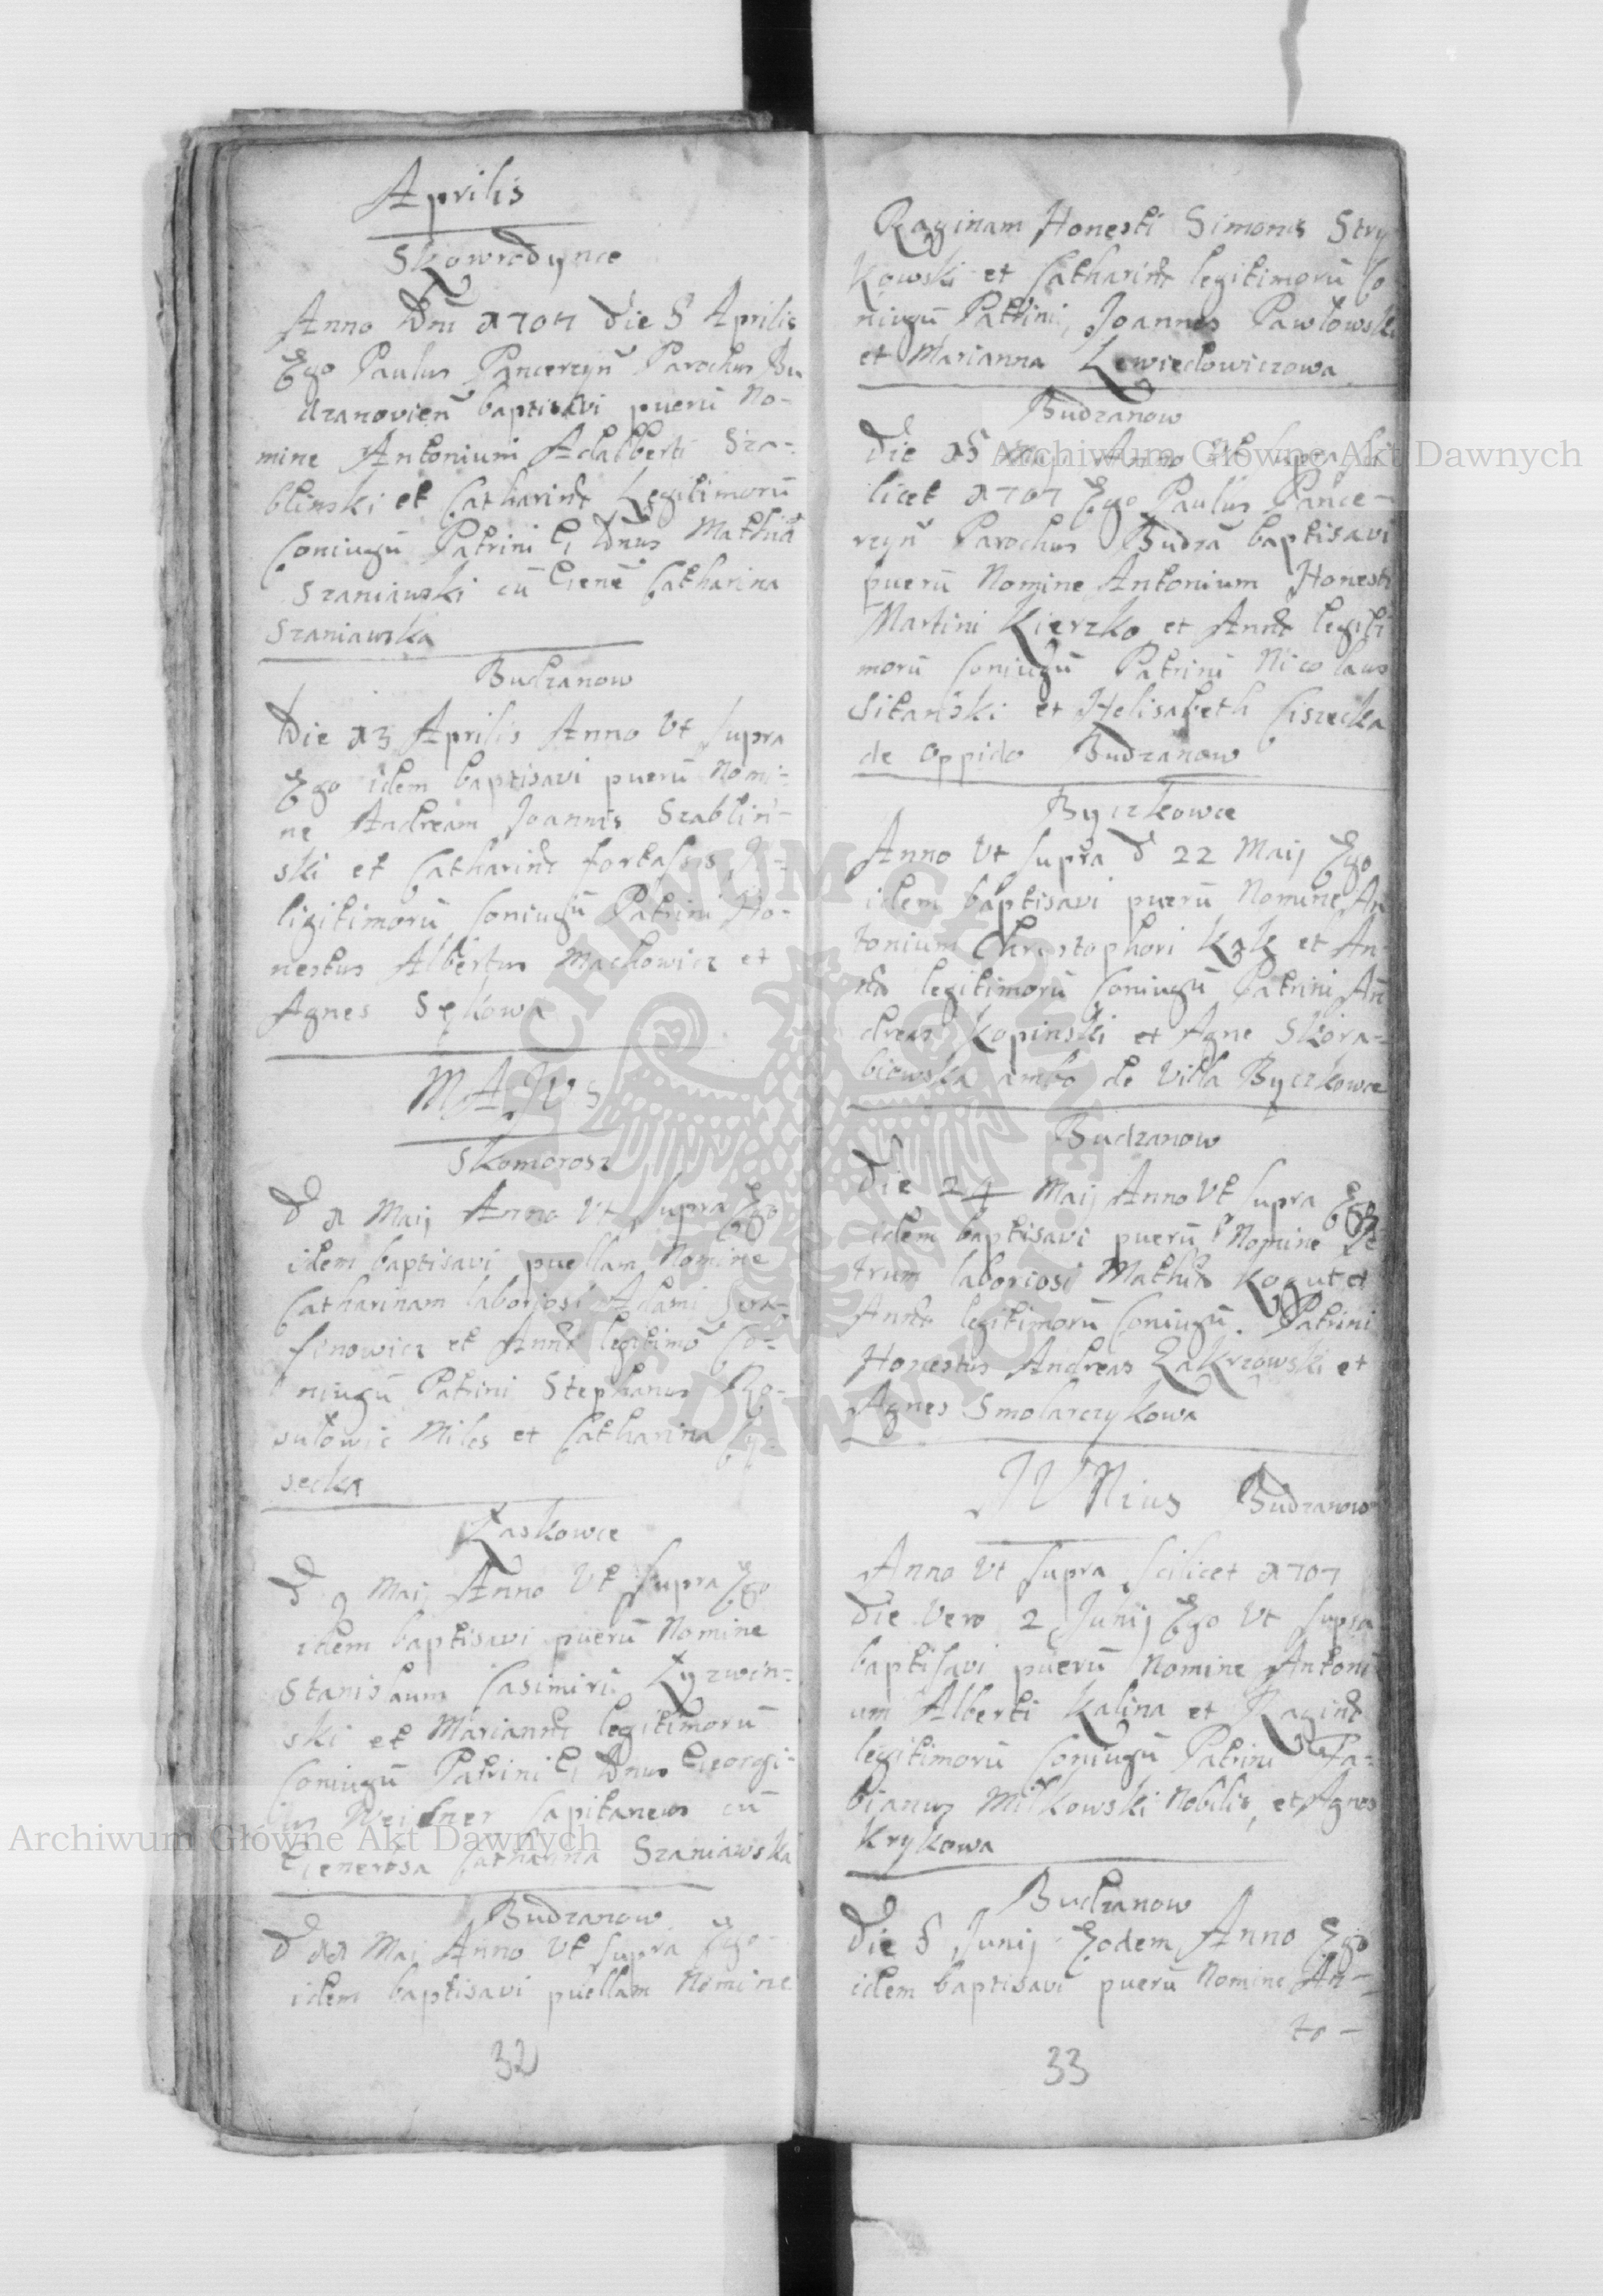 Aprilis
Skowrodynce
Anno Dni 1707 Die 5 Aprilis
Ego Paulus Pancerzyn Parochus Bu
dzanovien baptisavi puerū No-
mine Antonium Adalberti Sza-
blinski et Catharinæ Legitimorū
Coniugū Patrini G Dnus Mathia
Szaniawski cū Gene Catharina
Szaniawska
Budzanow
Die 13 Aprilis Anno Vt supra
Ego idem baptisavi puerū Nomi-
ne Andream Joannis Szablin-
ski et Catharinæ fortassis
ligitimorū Coniugū Patrini Ho-
nestus Albertus Machowicz et
Agnes Sękowa
MAJVS
Skomorosz
D 1 Maij Anno Vt supra Ego
idem baptisavi puellam Nomine
Catharinam laboriosi Adami Sera-
finowicz et Annæ legitimō Co-
niugū Patrini Stephanus Ro-
sułowic Miles et Catharina
secka
Łaskowce
D 9 Maij Anno Vt supra Ego
idem baptisavi puerū Nomine
Stanislaum Casimirū Łyzwin-
ski et Mariannæ legitimorū
Coniugū Patrini G Dnus Georgi-
us Weidner Capitaneus cū
Generosa Catharina Szaniawska
Budzanow
D 11 Maij Anno Vt supra Ego
idem baptisavi puellam Nomine
32
Raginam Honesti Simonis Stry
kowski et Catharinæ legitimorū Co
niugū Patrini, Joannes Pawłowski
et Marianna Lewiedowiczowa
Budzanow
Die 15 Maij Anno Vt supra sci
licet 1707 Ego Paulus Pance-
rzyn Parochus Budza baptisavi
puerū Nomine Antonium Honesti
Martini Kierzko et Annæ legiti
morū Coniugū Patrini Nicolaus
Sitański et Helisabeth Ciszecka
de Oppido Budzanow
Byczkowce
Anno Vt supra d 22 Maij Ego
idem baptisavi puerū Nomine An
tonium Christophori Kzk et An-
næ legitimorū Coniugū Patrini An
dreas Kopinski et Agne Skora-
biowska ambo de Villa Byczkowce
Budzanow
Die 24 Maij Anno Vt supra Ego
idem baptisavi puerū Nomine Pe
trum laboriosi Mathiæ Kogut et
Annæ legitimorū Coniugū. Patrini
Honestus Andreas Zakrzowski et
Agnes Smolarczykowa
JVNius Budzanow
Anno Vt supra scilicet 1707
Die Vero 2 Junij Ego Vt supra
baptisavi puerū Nomine Antoni
um Alberti Kalina et Raginæ
legitimorū Coniugū Patrini Fa-
bianus Milkowski Nobilis, et Agnes
Krykowa
Budzanow
Die 5 Junij Eodem Anno Ego
idem baptisavi puerū Nomine An-
to-
33
Archiwum Główne Akt Dawnych
Archiwum Główne Akt Dawnych
ARCHIWUM GŁÓWNE AKT DAWNYCH